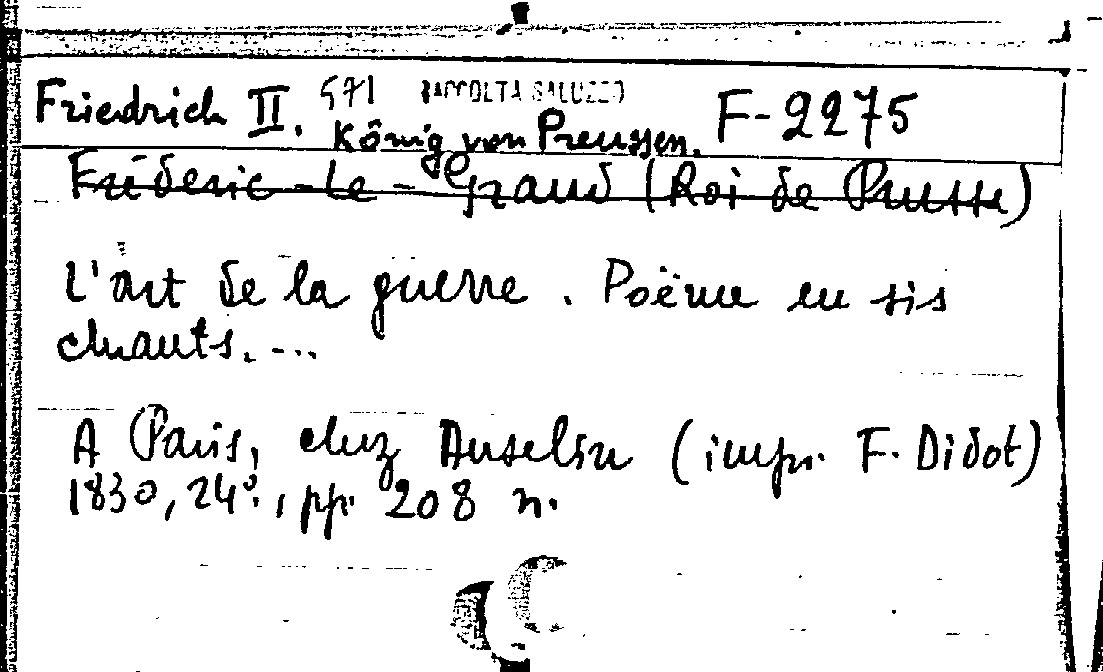 Friedrich II. 571 RACCOLTA SALUZZO F-2275
König von Preussen.
Fréderic-le-Grand (Roi de Prusse)
L'art de la guerre. Poëme en sis
chants....
A Paris, chez Anselin (impr. F. Didot)
1830, 24º., pp. 208 n.